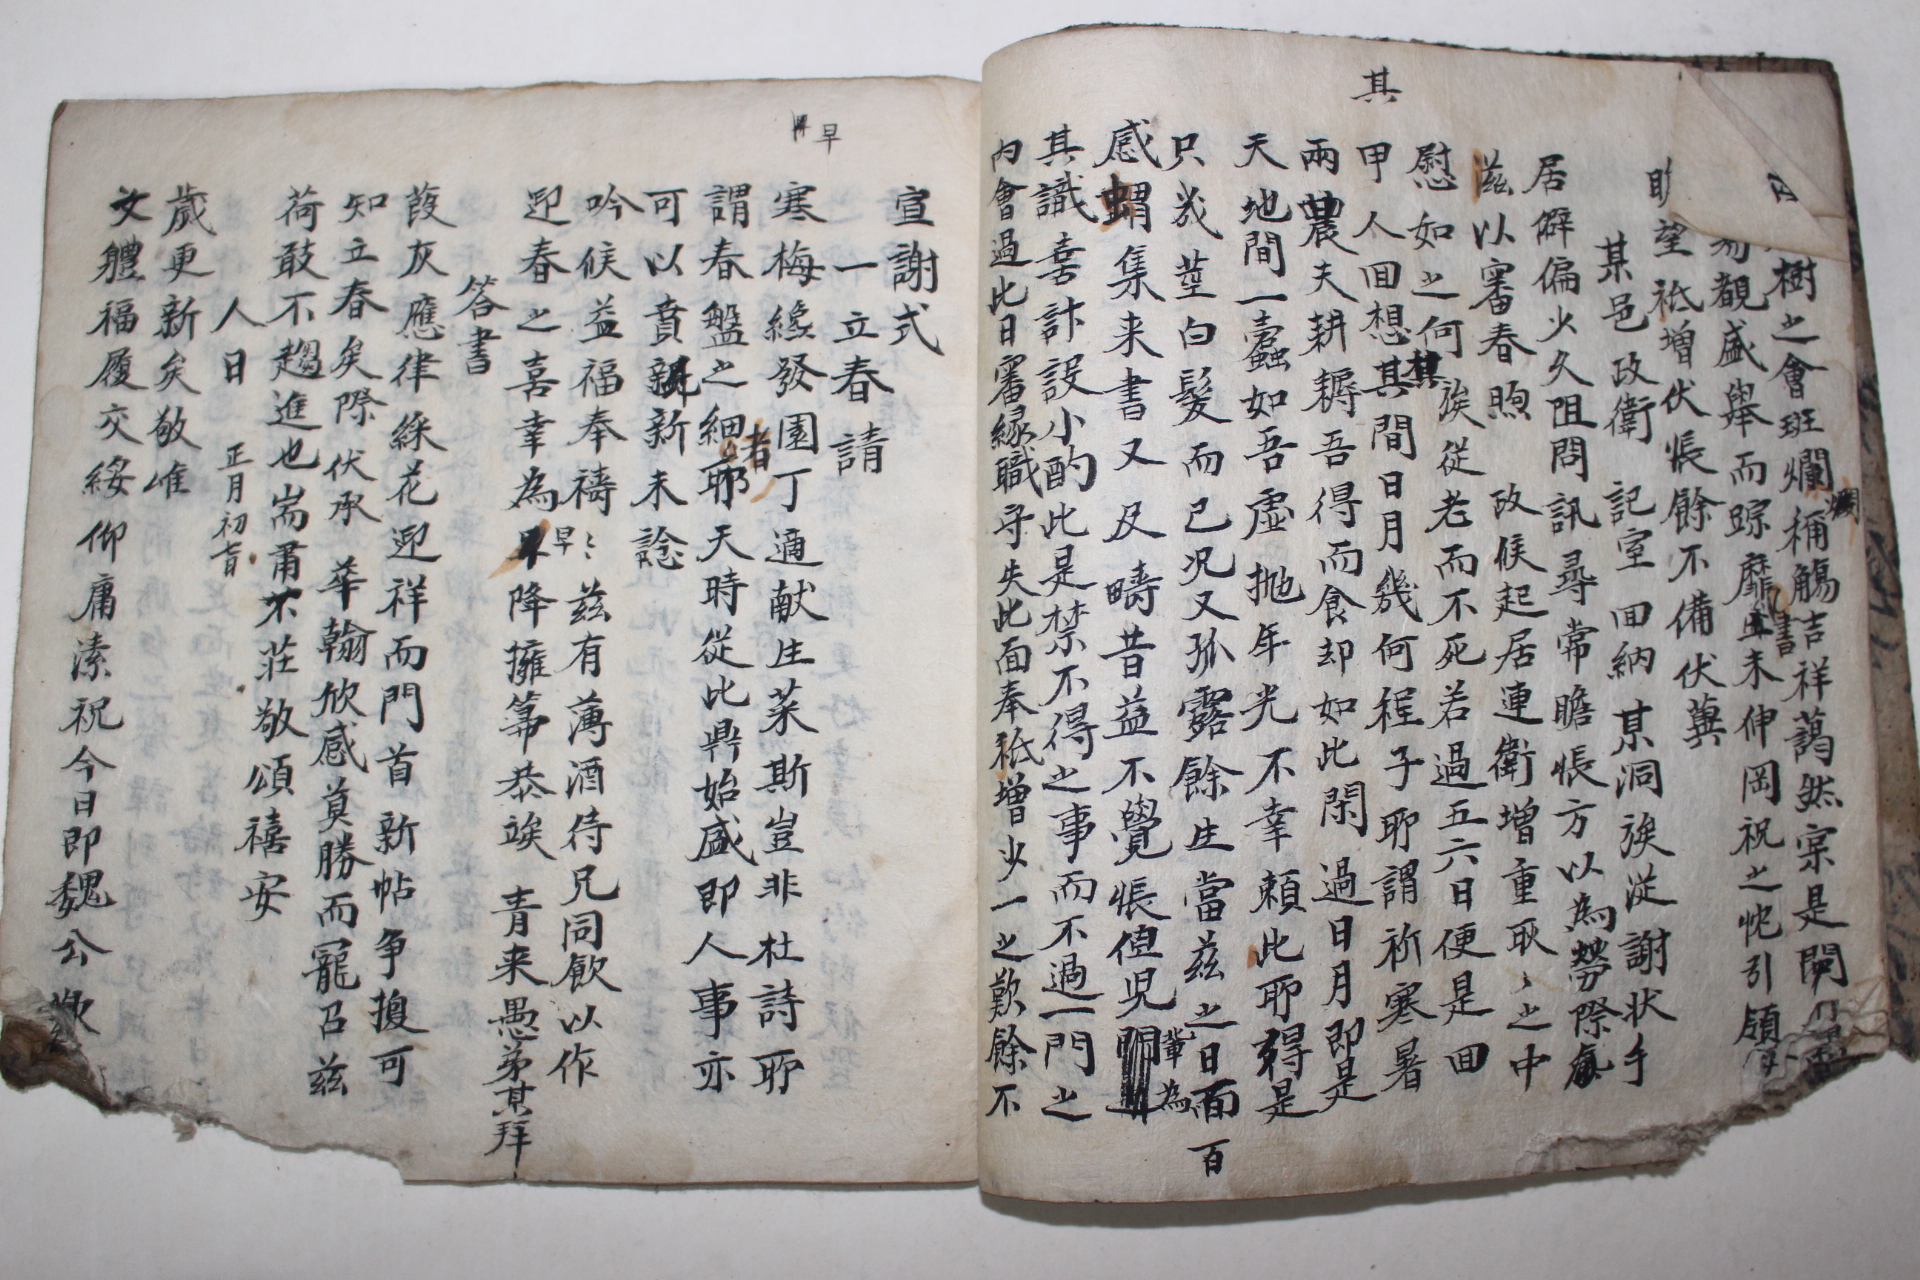 樹之會班爛稱觴吉祥藹然宗是閈
觀盛舉而踪靡書未伸岡祝之忱引領
望祗增伏悵餘不備伏冀
某邑政衛 記室 回納 某洞族從謝狀手
居僻偏少久阻問訊尋常瞻悵方以為勞際
滋以審春煦 政候起居連衛增重耿〻之中
慰如之何其族從老而不死若過五六日便是回
甲人回想其間日月幾何程子耶謂祈寒暑
其
兩農夫耕耨吾得而食却如此閑過日月即是
天地間一蠧如吾虛抛年光不幸賴此耶得是
只幾莖白髮而已況又孤露餘生當茲之日面
百
感蝟集来書又及疇昔益不覺悵值児輩為
其識喜計設小酌此是禁不得之事而不過一門之
內會過此日審緣職守失此面奉祗增少一之歎餘不
早
宣謝式
一立春請
寒梅綠發園丁適献生菜斯豈非杜詩耶
謂春盤之細者耶天時從此鼎始盛即人事亦
可以賁親新未諗
吟候益福奉禱〻早茲有薄酒侍兄同飮以作
迎春之喜幸為早降擁篲恭竢 青来愚弟某拜
答書
葭灰應律綵花迎祥而門首新帖争換可
知立春矣際伏承 華翰欣感奠勝而寵召茲
荷敢不趨進也耑肅不莊敬頌禧安
人日 正月初旨
歲更新矣敬惟
文軆福履交綏仰庸溱祝今日即魏公